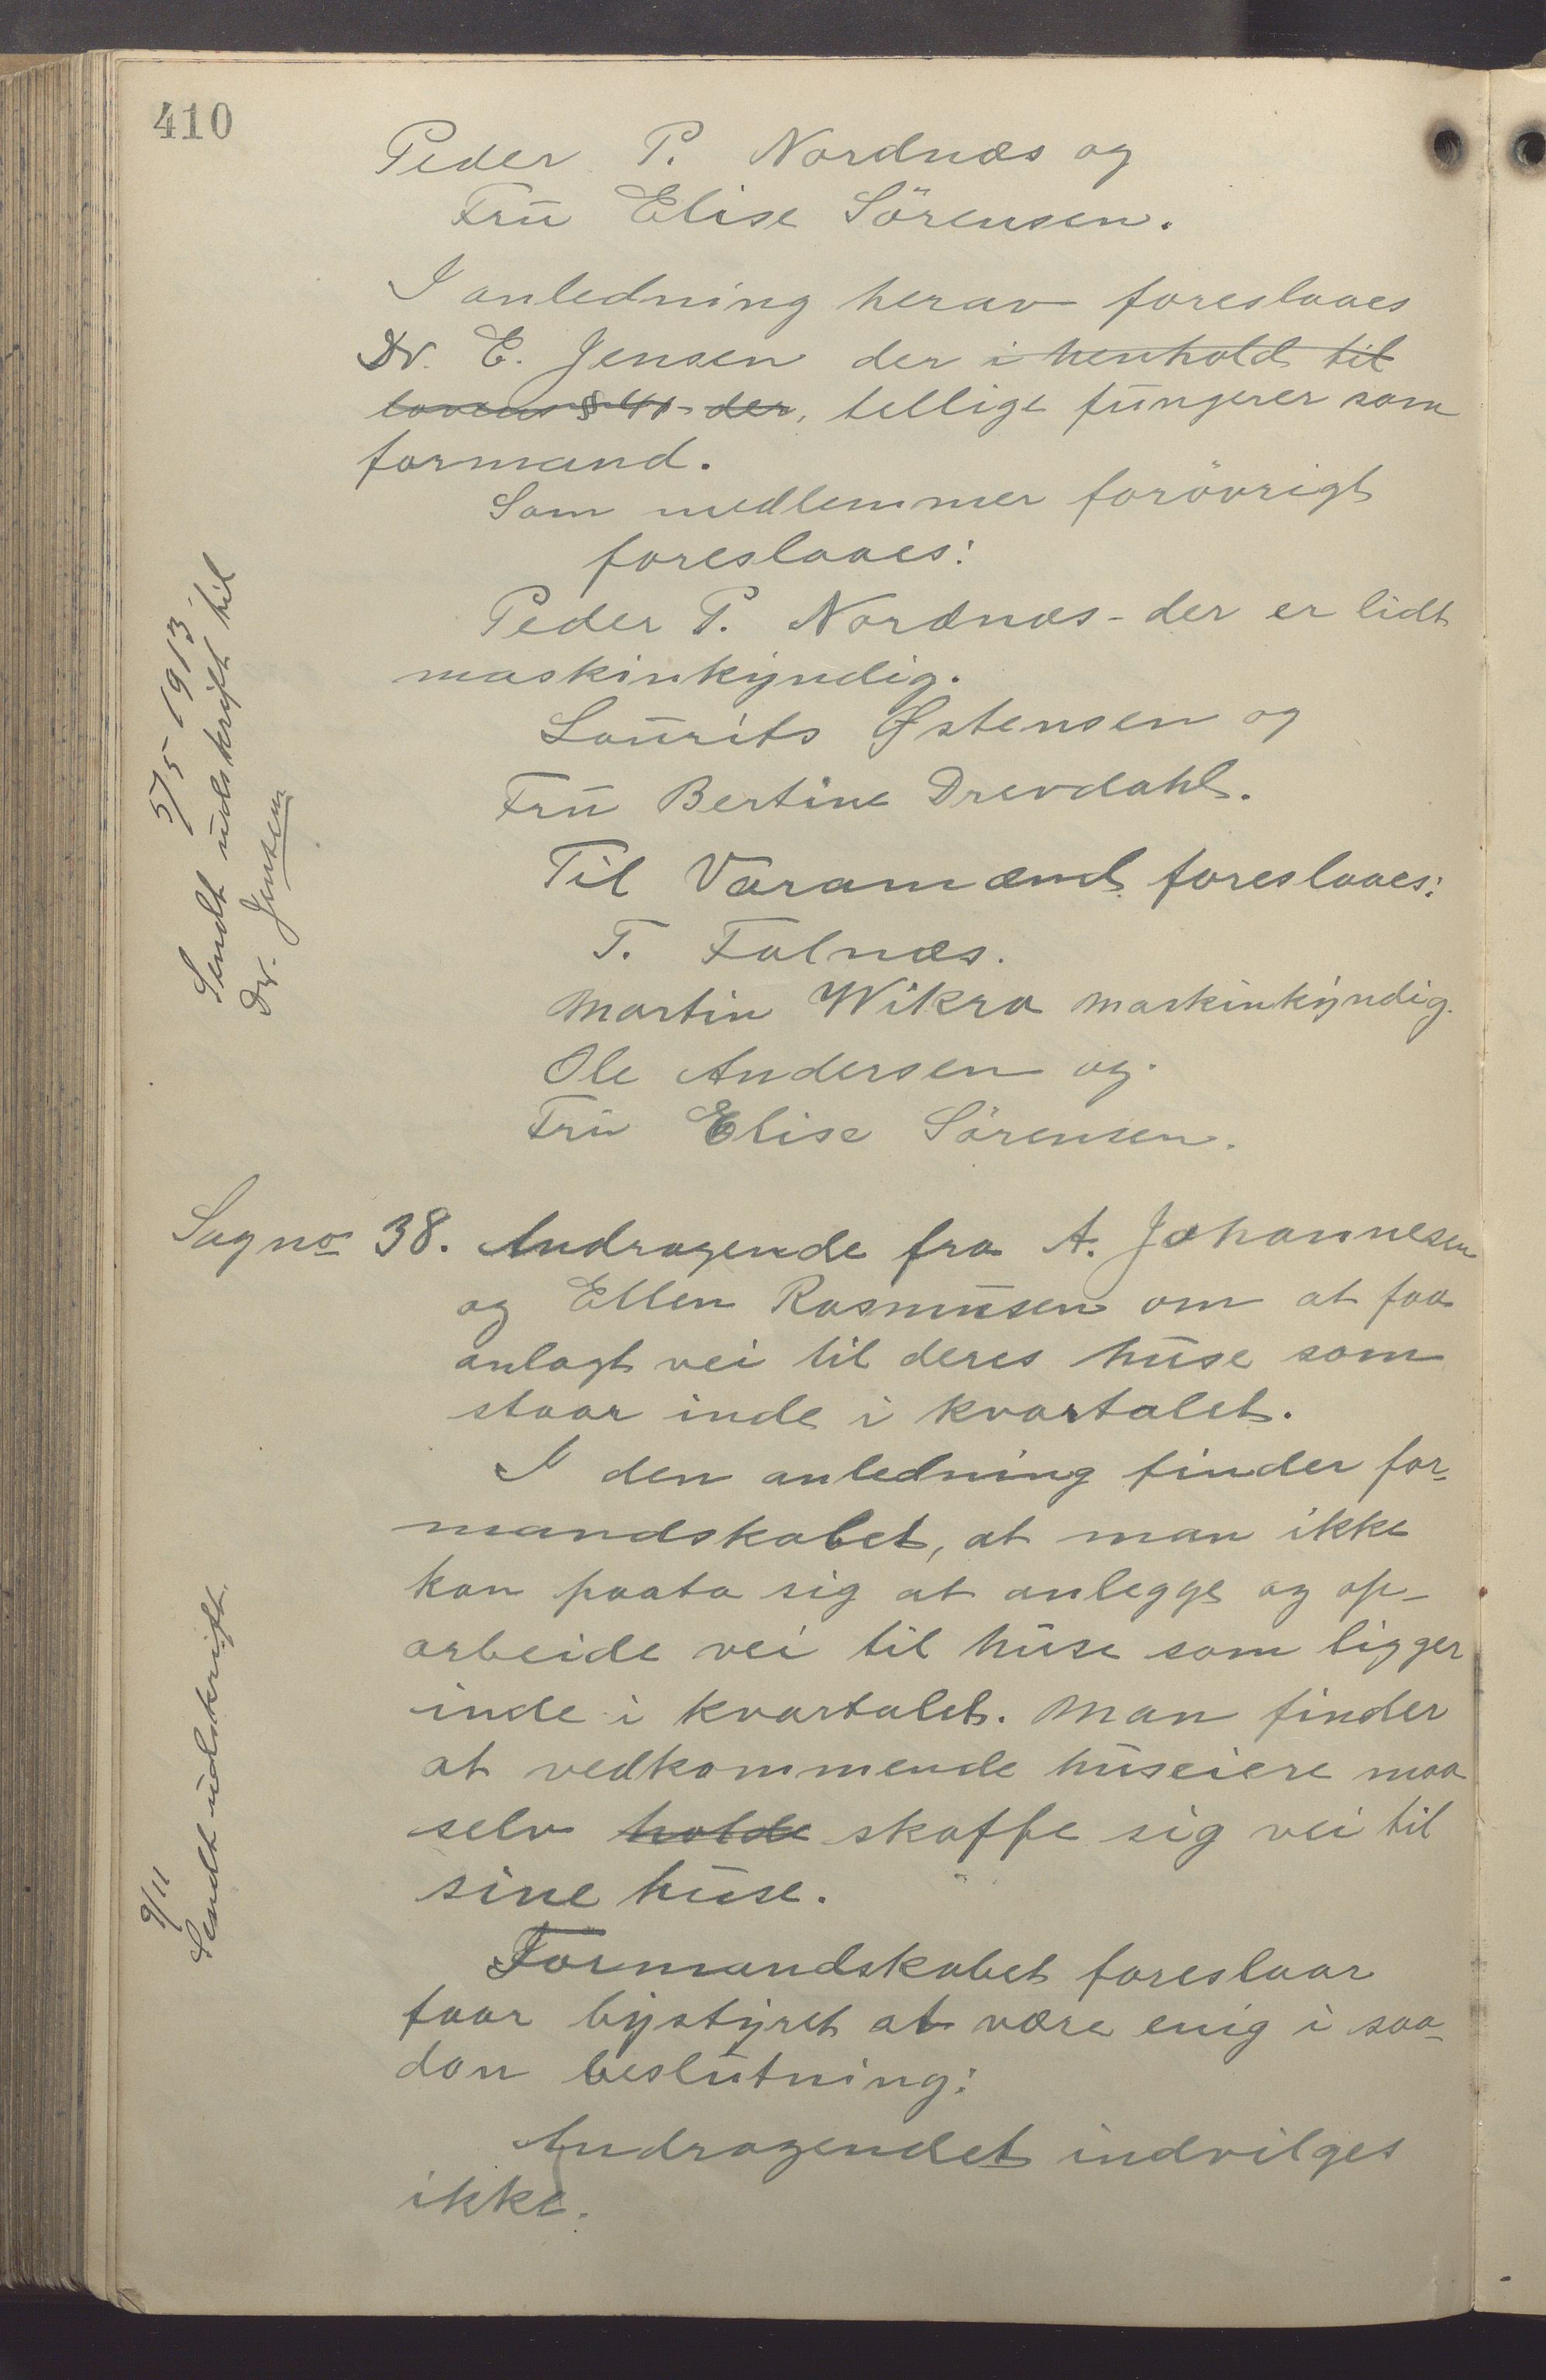 410
Peder P. Nordnæs og
Fru Elise Sörensen.
I anledning herav foreslaaes
Dr. E. Jensen der i henhold til
lovens § 41 der, tellige fungerer som
formand.
Som medlemmer forövrigt
foreslaaes:
Peder P. Nordnæs - der er lidt
maskinkyndig.
Laurits Østensen og
Fru Bertine Drevdahl.
Til Varamænd foreslaaes:
T. Falnæs.
Martin Wikra maskinkyndig.
Ole Andersen og
Fru Elise Sörensen.
5/5 - 1913.
Sendt udskrift til
Dr. Jensen
Sag no 38. Andragende fra A. Johannesen
og Ellen Rasmusen om at faa
anlagt vei til deres huse som
staar inde i kvartalet.
I den anledning finder for-
mandskabet, at man ikke
kan paata sig at anlegge og op-
arbeide vei til huse som ligger
inde i kvartalet. Man finder
at vedkommende huseiere maa
selv holde skaffe sig vei til
sine huse.
9/11
Sendt udskrift.
Formandskabet foreslaar
faar bystyret at være enig i saa-
dan beslutning:
Andragendet indvilges
ikke.